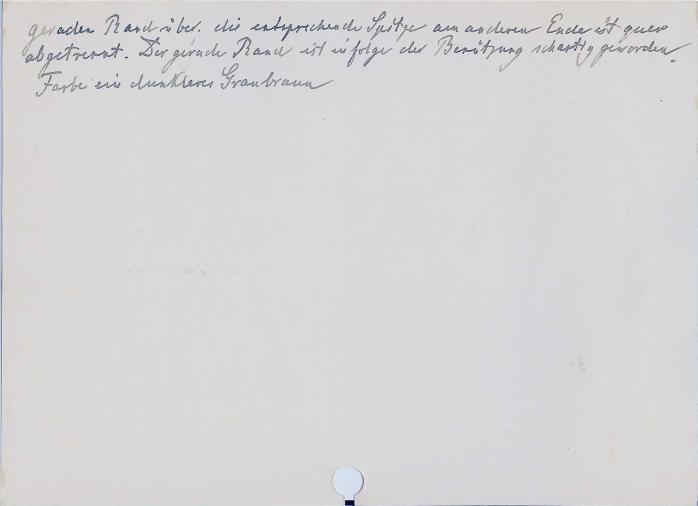 geraden Rand über. die entsprechende Spitze am anderen Ende ist quer
abgetrennt. Der gerade Rand ist infolge der Benützung schartig geworden.
Farbe ein dunkleres Graubraun